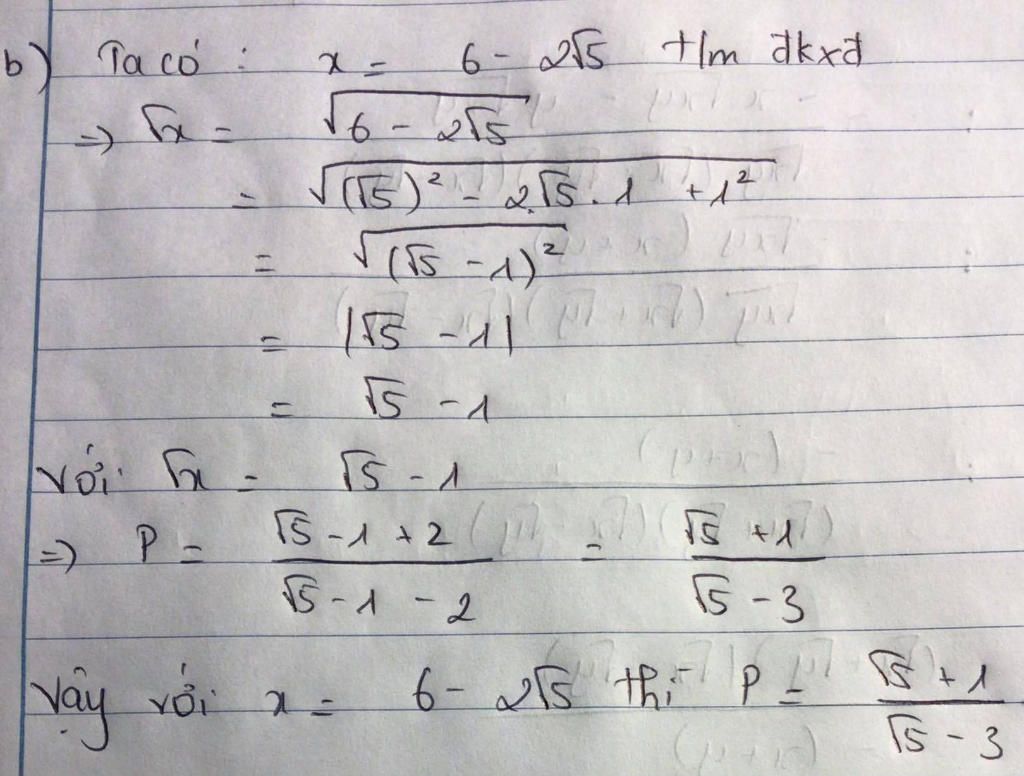 b) Ta có : x = 6 - 2√5 t/m đkxđ
=> √x = √(6 - 2√5)
= √((√5)² - 2.√5.1 + 1²)
= √((√5 - 1)²)
= |√5 - 1|
= √5 - 1
Với √x = √5 - 1
=> P = (√5 - 1 + 2)/(√5 - 1 - 2) = (√5 + 1)/(√5 - 3)
Vậy với x = 6 - 2√5 thì P = (√5 + 1)/(√5 - 3)